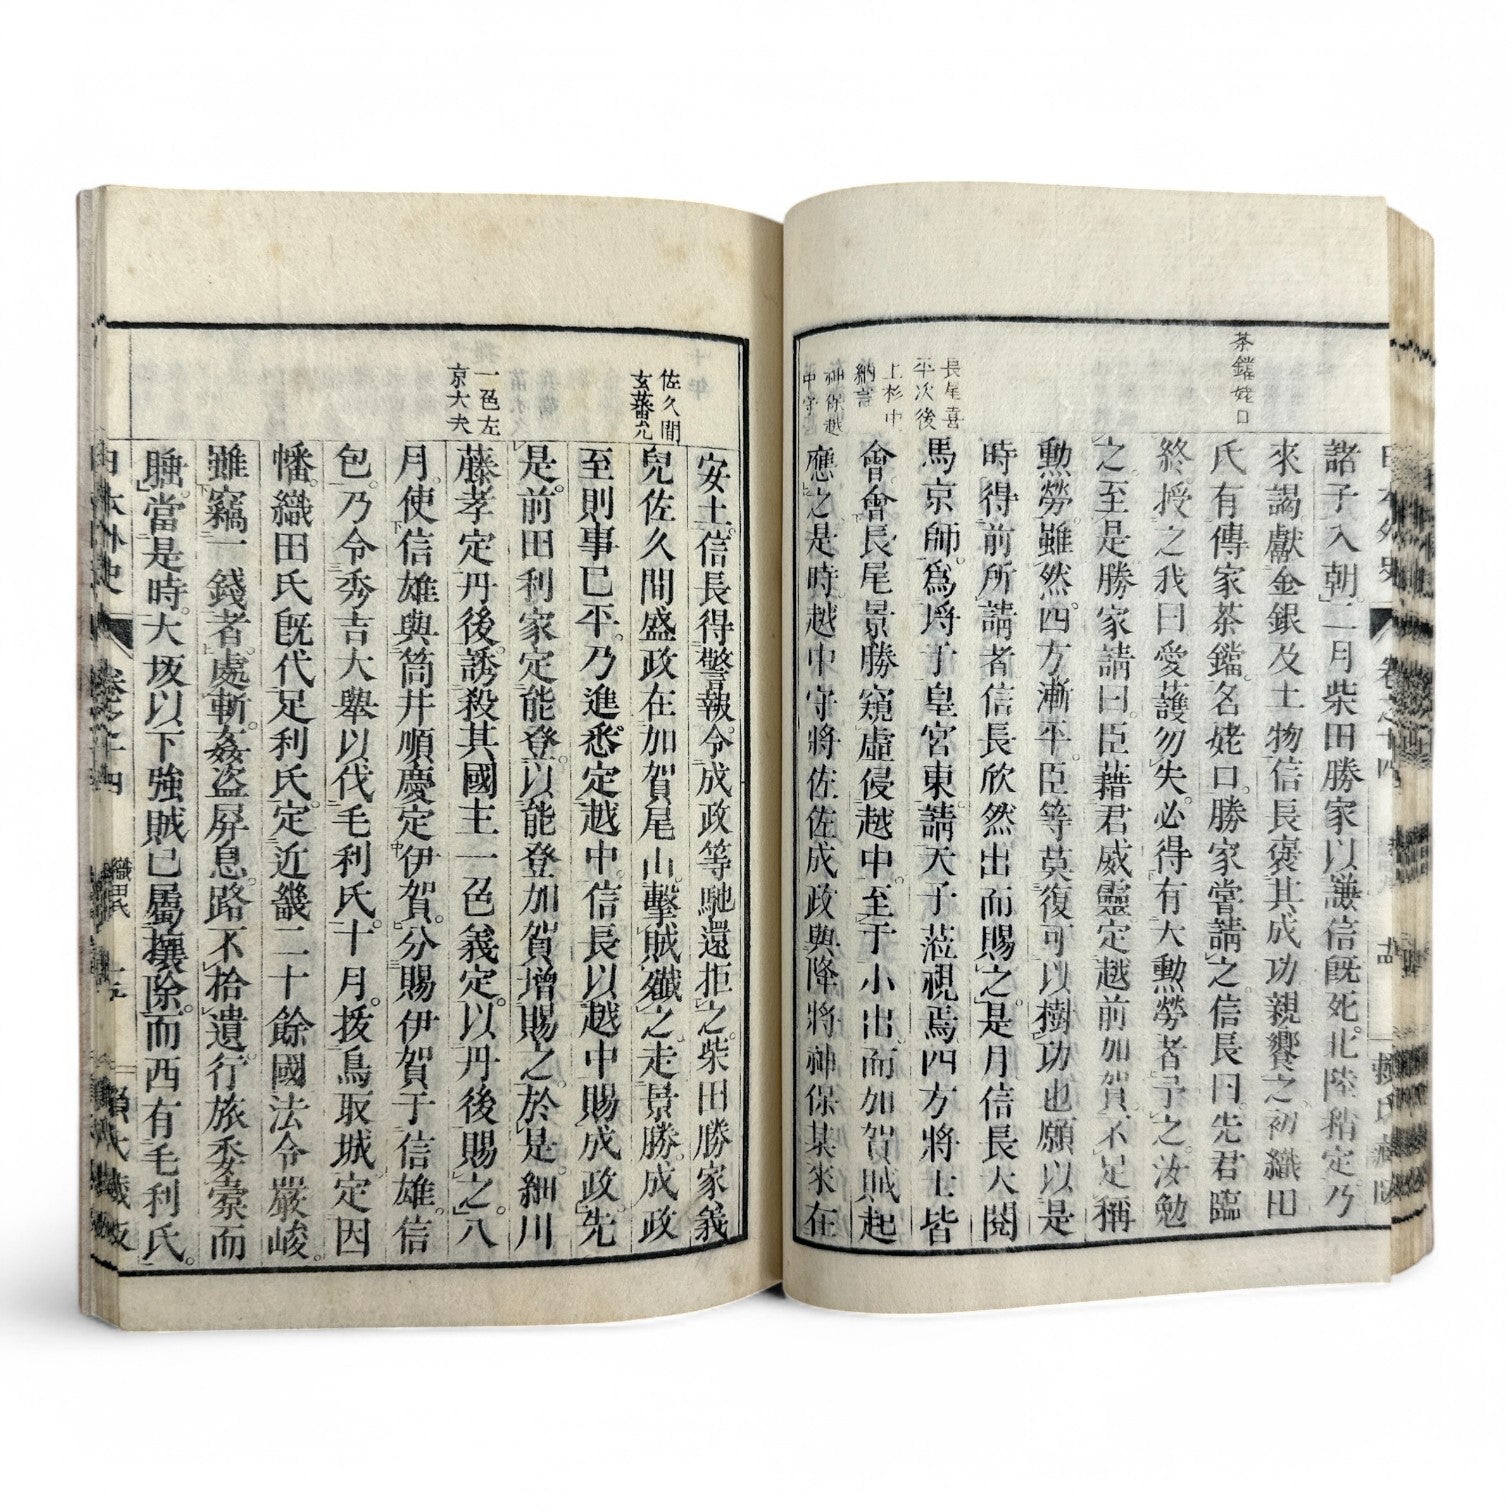 茶鐺姥口
長尾喜
平次後
上杉中
納言
神保越
中守
諸子入朝二月柴田勝家以謙信既死北陸稍定乃
來謁獻金銀及土物信長褒其成功親饗之初織田
氏有傳家茶鐺名姥口勝家嘗請之信長曰先君臨
終授之我曰愛護勿失必得有大勳勞者予之汝勉
之至是勝家請曰臣藉君威靈定越前加賀不足稱
勳勞雖然四方漸平臣等莫復可以樹功也願以是
時得前所請者信長欣然出而賜之是月信長大閱
馬京師爲埒于皇宮東請天子蒞視焉四方將士皆
會會長尾景勝窺虛侵越中至于小出而加賀賊起
應之是時越中守將佐佐成政與降將神保某來在
佐久間
玄蕃允
一色左
京大夫
安土信長得警報令成政等馳還拒之柴田勝家義
兒佐久間盛政在加賀尾山擊賊殲之走景勝成政
至則事已平乃進悉定越中信長以越中賜成政先
是前田利家定能登以能登加賀增賜之於是細川
藤孝定丹後誘殺其國主一色義定以丹後賜之八
月使信雄與筒井順慶定伊賀分賜伊賀于信雄信
包乃令秀吉大舉以伐毛利氏十月拔鳥取城定因
幡織田氏既代足利氏定近畿二十餘國法令嚴峻
雖竊一錢者處斬姦盜屛息路不拾遺行旅委橐而
睡當是時大坂以下強賊已屬攘除而西有毛利氏
日本外史 卷之十四 織田氏 賴氏藏版